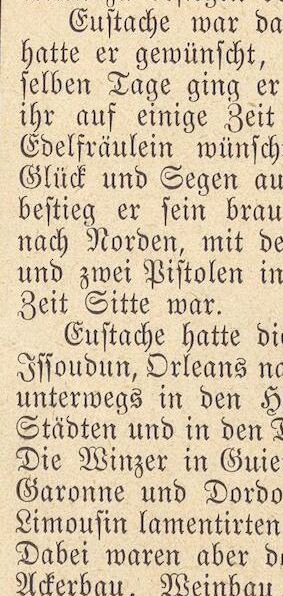 Eustache war da
hatte er gewünscht,
selben Tage ging er
ihr auf einige Zeit
Edelfräulein wünsch
Glück und Segen au
bestieg er sein brau
nach Norden, mit de
und zwei Pistolen in
Zeit Sitte war.
Eustache hatte die
Issoudun, Orleans na
unterwegs in den H
Städten und in den
Die Winzer in Guie
Garonne und Dordo
Limousin lamentirten
Dabei waren aber de
Ackerbau, Weinbau